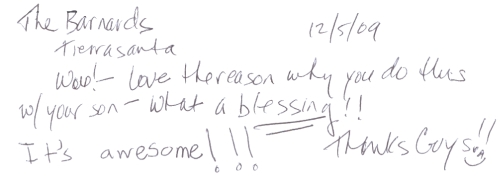 The Barnards 12/5/09
Tierrasanta
Wow!- love thereason why you do this
w/ your son - what a blessing!!
It's awesome!!! Thanks Guys!!